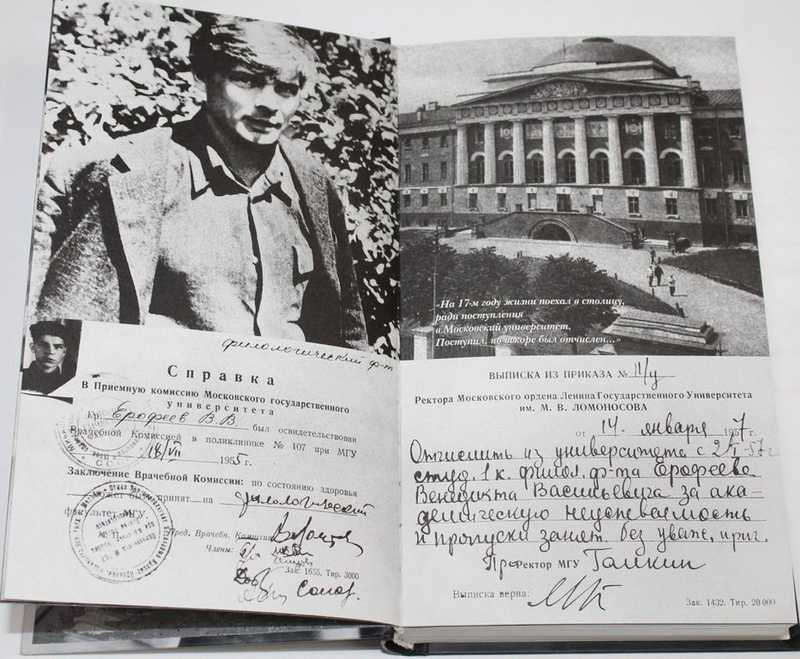 филологический ф-т
Справка
в Приемную комиссию Московского государственного
университета
Гр. Ерофеев В. В. был освидетельствован
Врачебной Комиссией в поликлинике № 107 при МГУ
18/VII 1955 г.
Заключение Врачебной Комиссии: по состоянию здоровья
может быть принят на филологический
факультет МГУ.
Пред. Врачебн. Комиссии
Члены:
Зак. 1655. Тир. 3000
«На 17-м году жизни поехал в столицу,
ради поступления
в Московский университет.
Поступил, но вскоре был отчислен...»
ВЫПИСКА ИЗ ПРИКАЗА № 11/у
Ректора Московского ордена Ленина Государственного Университета
им. М. В. ЛОМОНОСОВА
от 14. января 1957 г.
Отчислить из университета с
студ. 1 к. филол. ф-та Ерофеева
Венедикта Васильевича за ака-
демическую неуспеваемость
и пропуски занят. без уваж. прич.
Проректор МГУ Галкин
Выписка верна:
Зак. 1432. Тир. 20 000